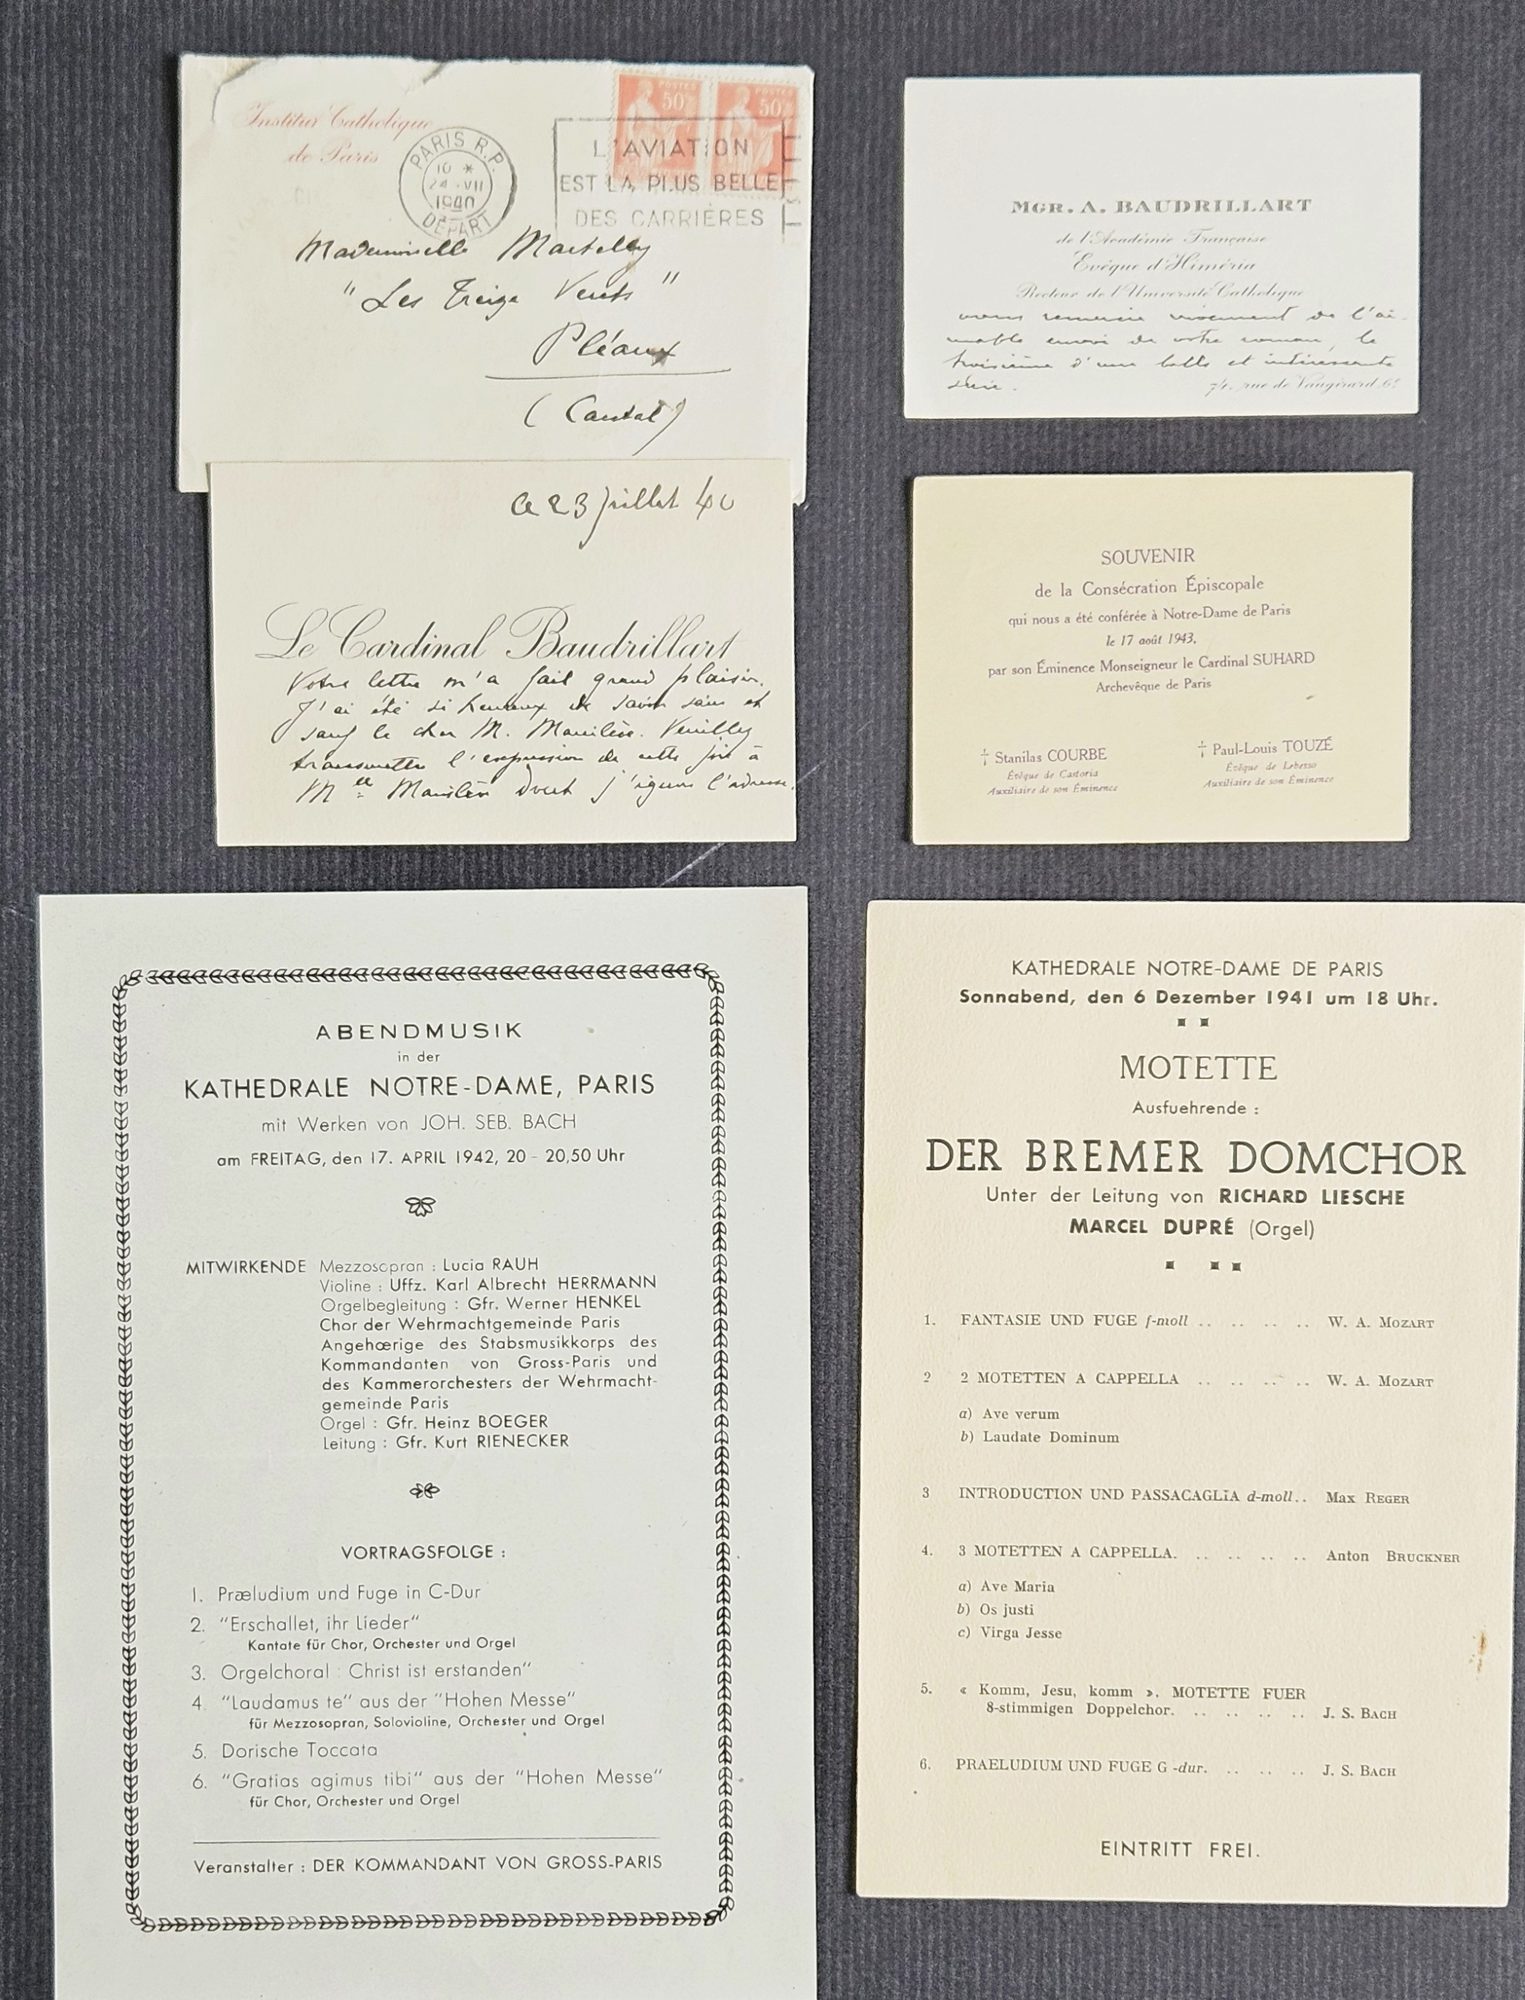 Institut Catholique
de Paris
PARIS R.P.
10 *
24 VII
1940
DÉPART
POSTES
50c
POSTES
50c
L'AVIATION
EST LA PLUS BELLE
DES CARRIÈRES
Mademoiselle Martelly
"Les Treize Vents"
Pléaux
(Cantal)
Ce 23 Juillet 40
Le Cardinal Baudrillart
Votre lettre m'a fait grand plaisir.
J'ai été si heureux de savoir sain et
sauf le cher M. Mauilère. Veuillez
transmettre l'expression de cette joie à
Mlle Mauilère dont j'ignore l'adresse.
MGR. A. BAUDRILLART
de l'Académie Française
Evêque d'Himéria
Recteur de l'Université Catholique
vous remercie vivement de l'ai-
mable envoi de votre roman, le
troisième d'une belle et intéressante
série.
74, rue de Vaugirard. 6e
SOUVENIR
de la Consécration Épiscopale
qui nous a été conférée à Notre-Dame de Paris
le 17 août 1943,
par son Éminence Monseigneur le Cardinal SUHARD
Archevêque de Paris
† Stanilas COURBE
Évêque de Castoria
Auxiliaire de son Éminence
† Paul-Louis TOUZÉ
Évêque de Lebesso
Auxiliaire de son Éminence
ABENDMUSIK
in der
KATHEDRALE NOTRE-DAME, PARIS
mit Werken von JOH. SEB. BACH
am FREITAG, den 17. APRIL 1942, 20 - 20,50 Uhr
MITWIRKENDE Mezzosopran : Lucia RAUH
Violine : Uffz. Karl Albrecht HERRMANN
Orgelbegleitung : Gfr. Werner HENKEL
Chor der Wehrmachtgemeinde Paris
Angehœrige des Stabsmusikkorps des
Kommandanten von Gross-Paris und
des Kammerorchesters der Wehrmacht-
gemeinde Paris
Orgel : Gfr. Heinz BOEGER
Leitung : Gfr. Kurt RIENECKER
VORTRAGSFOLGE :
1. Præludium und Fuge in C-Dur
2. "Erschallet, ihr Lieder"
Kantate für Chor, Orchester und Orgel
3. Orgelchoral : Christ ist erstanden"
4. "Laudamus te" aus der "Hohen Messe"
für Mezzosopran, Solovioline, Orchester und Orgel
5. Dorische Toccata
6. "Gratias agimus tibi" aus der "Hohen Messe"
für Chor, Orchester und Orgel
Veranstalter : DER KOMMANDANT VON GROSS-PARIS
KATHEDRALE NOTRE-DAME DE PARIS
Sonnabend, den 6 Dezember 1941 um 18 Uhr.
MOTETTE
Ausfuehrende :
DER BREMER DOMCHOR
Unter der Leitung von RICHARD LIESCHE
MARCEL DUPRÉ (Orgel)
1. FANTASIE UND FUGE f-moll .. .. .. .. W. A. MOZART
2 2 MOTETTEN A CAPPELLA .. .. .. .. W. A. MOZART
a) Ave verum
b) Laudate Dominum
3 INTRODUCTION UND PASSACAGLIA d-moll.. Max REGER
4. 3 MOTETTEN A CAPPELLA. .. .. .. .. Anton BRUCKNER
a) Ave Maria
b) Os justi
c) Virga Jesse
5. « Komm, Jesu, komm ». MOTETTE FUER
8-stimmigen Doppelchor. .. .. .. .. J. S. BACH
6. PRAELUDIUM UND FUGE G -dur. .. .. .. J. S. BACH
EINTRITT FREI.